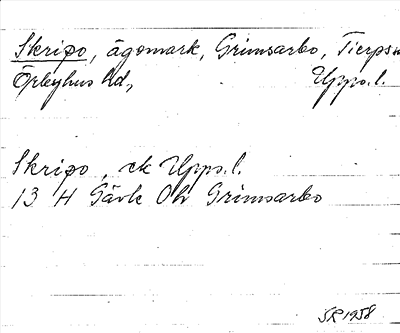 Skripo, ägomark, Grimsarbo, Tierps sn
Örbyhus hd, Upps. l.
Skripo, ek Upps. l.
13 H Gävle Ö Grimsarbo
SR 1958